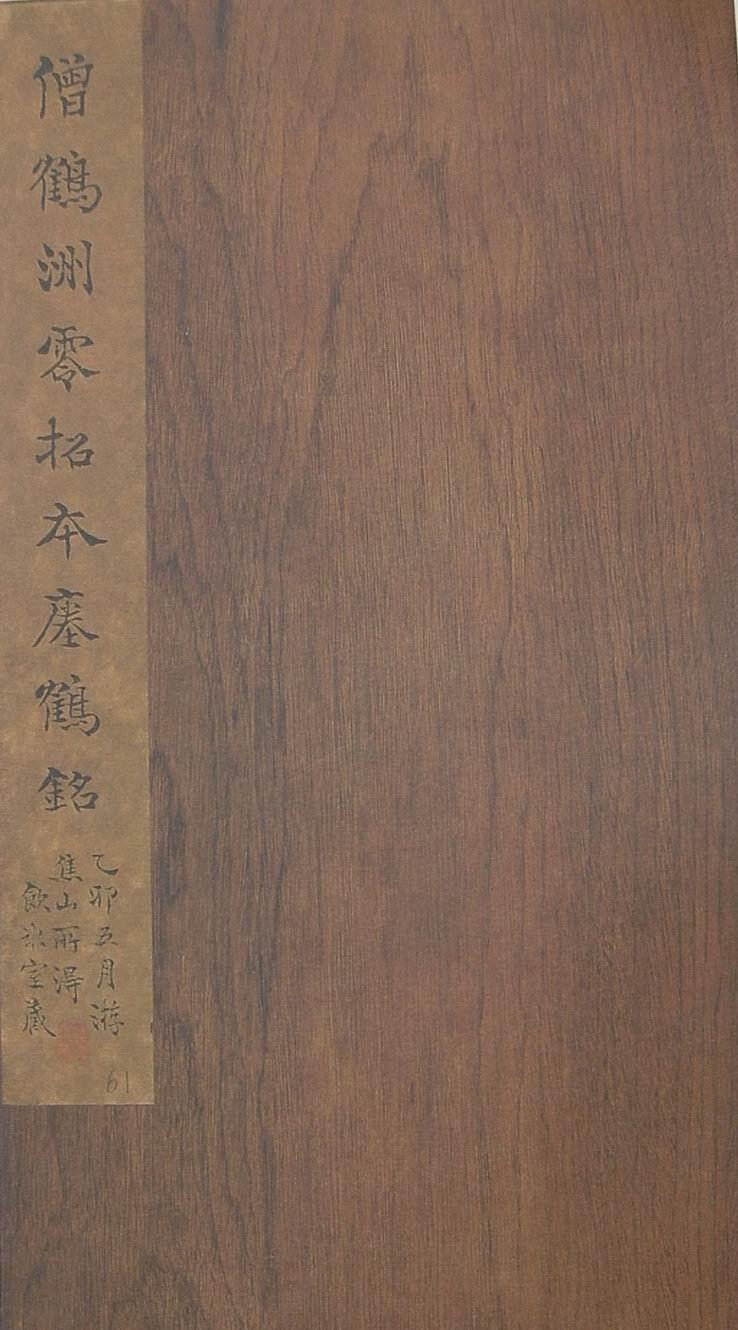 僧鶴洲零拓本瘞鶴銘
乙卯五月游
焦山所得
飲冰室藏
61